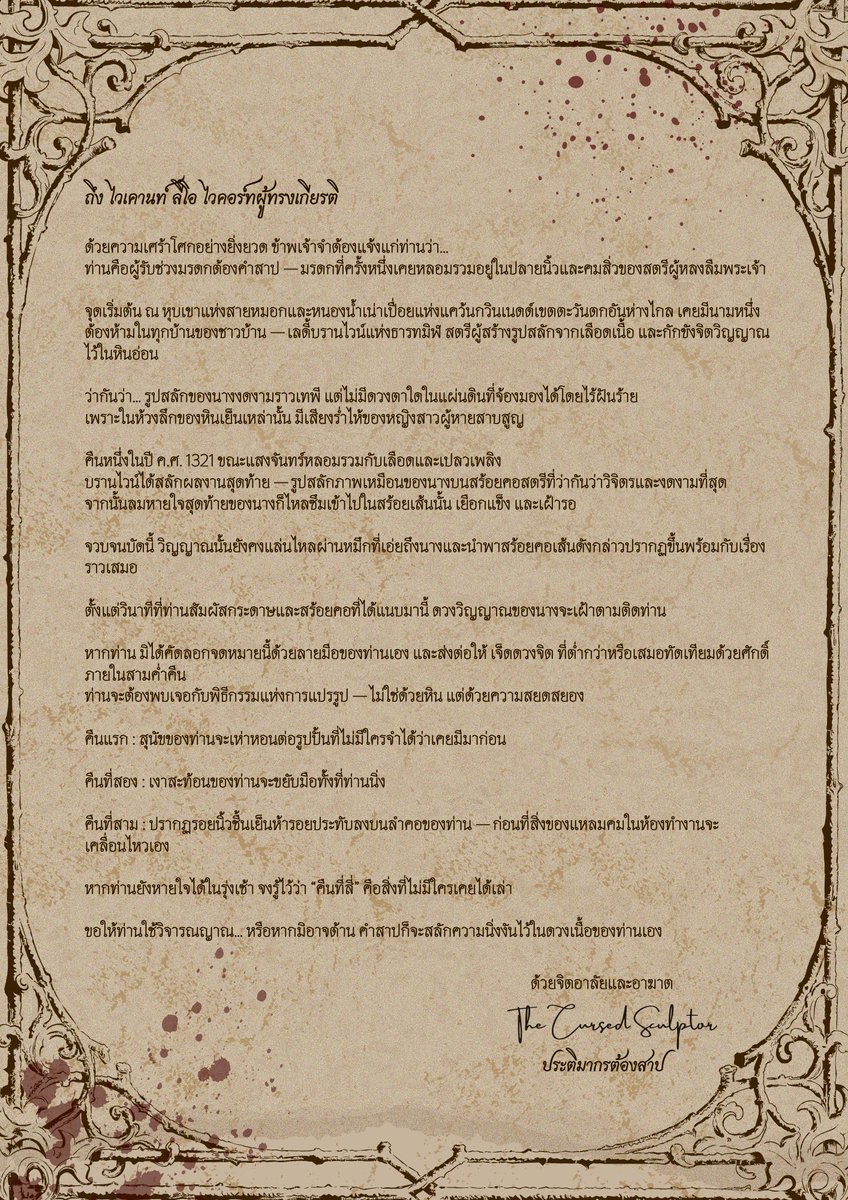 ถึง ไวเคานท์ ลีโอ ไวคอร์ทผู้ทรงเกียรติ
ด้วยความเศร้าโศกอย่างยิ่งยวด ข้าพเจ้าจำต้องแจ้งแก่ท่านว่า...
ท่านคือผู้รับช่วงมรดกต้องคำสาป — มรดกที่ครั้งหนึ่งเคยหลอมรวมอยู่ในปลายนิ้วและคมสิ่วของสตรีผู้หลงลืมพระเจ้า
จุดเริ่มต้น ณ หุบเขาแห่งสายหมอกและหนองน้ำเน่าเปื่อยแห่งแคว้นกวินเนดด์เขตตะวันตกอันห่างไกล เคยมีนามหนึ่ง
ต้องห้ามในทุกบ้านของชาวบ้าน — เลดี้บรานไวน์แห่งธารทมิฬ สตรีผู้สร้างรูปสลักจากเลือดเนื้อ และกักขังจิตวิญญาณ
ไว้ในหินอ่อน
ว่ากันว่า... รูปสลักของนางงดงามราวเทพี แต่ไม่มีดวงตาใดในแผ่นดินที่จ้องมองได้โดยไร้ฝันร้าย
เพราะในห้วงลึกของหินเย็นเหล่านั้น มีเสียงร่ำไห้ของหญิงสาวผู้หายสาบสูญ
คืนหนึ่งในปี ค.ศ. 1321 ขณะแสงจันทร์หลอมรวมกับเลือดและเปลวเพลิง
บรานไวน์ได้สลักผลงานสุดท้าย — รูปสลักภาพเหมือนของนางบนสร้อยคอสตรีที่ว่ากันว่าวิจิตรและงดงามที่สุด
จากนั้นลมหายใจสุดท้ายของนางก็ไหลซึมเข้าไปในสร้อยเส้นนั้น เยือกแข็ง และเฝ้ารอ
จวบจนบัดนี้ วิญญาณนั้นยังคงแล่นไหลผ่านหมึกที่เอ่ยถึงนางและนำพาสร้อยคอเส้นดังกล่าวปรากฏขึ้นพร้อมกับเรื่อง
ราวเสมอ
ตั้งแต่วินาทีที่ท่านสัมผัสกระดาษและสร้อยคอที่ได้แนบมานี้ ดวงวิญญาณของนางจะเฝ้าตามติดท่าน
หากท่าน มิได้คัดลอกจดหมายนี้ด้วยลายมือของท่านเอง และส่งต่อให้ เจ็ดดวงจิต ที่ต่ำกว่าหรือเสมอทัดเทียมด้วยศักดิ์
ภายในสามค่ำคืน
ท่านจะต้องพบเจอกับพิธีกรรมแห่งการแปรรูป — ไม่ใช่ด้วยหิน แต่ด้วยความสยดสยอง
คืนแรก : สุนัขของท่านจะเห่าหอนต่อรูปปั้นที่ไม่มีใครจำได้ว่าเคยมีมาก่อน
คืนที่สอง : เงาสะท้อนของท่านจะขยับมือทั้งที่ท่านนิ่ง
คืนที่สาม : ปรากฏรอยนิ้วชื้นเย็นห้ารอยประทับลงบนลำคอของท่าน — ก่อนที่สิ่งของแหลมคมในห้องทำงานจะ
เคลื่อนไหวเอง
หากท่านยังหายใจได้ในรุ่งเช้า จงรู้ไว้ว่า “คืนที่สี่” คือสิ่งที่ไม่มีใครเคยได้เล่า
ขอให้ท่านใช้วิจารณญาณ... หรือหากมิอาจต้าน คำสาปก็จะสลักความนิ่งงันไว้ในดวงเนื้อของท่านเอง
ด้วยจิตอาลัยและอาฆาต
The Cursed Sculptor
ประติมากรต้องสาป